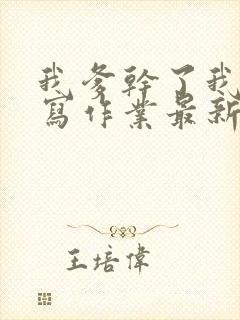 我爹幹了我
寫作業最新
王培偉